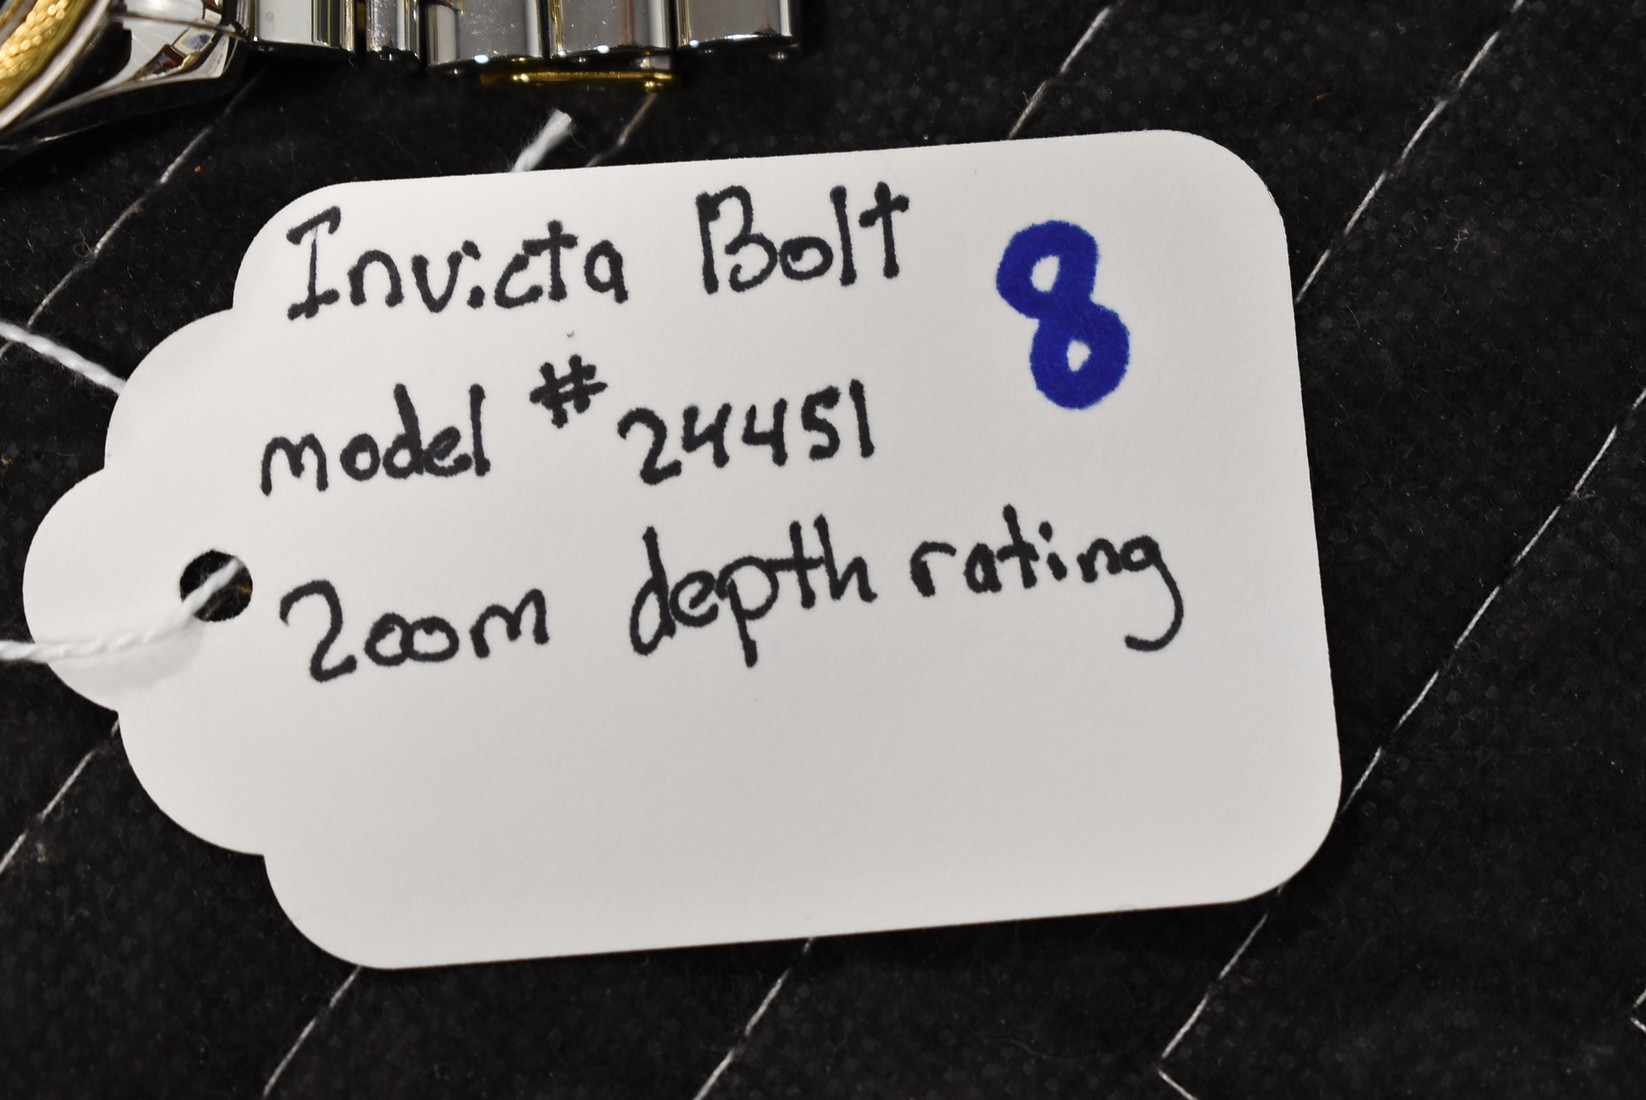 Invicta Bolt
8
model # 24451
200m depth rating